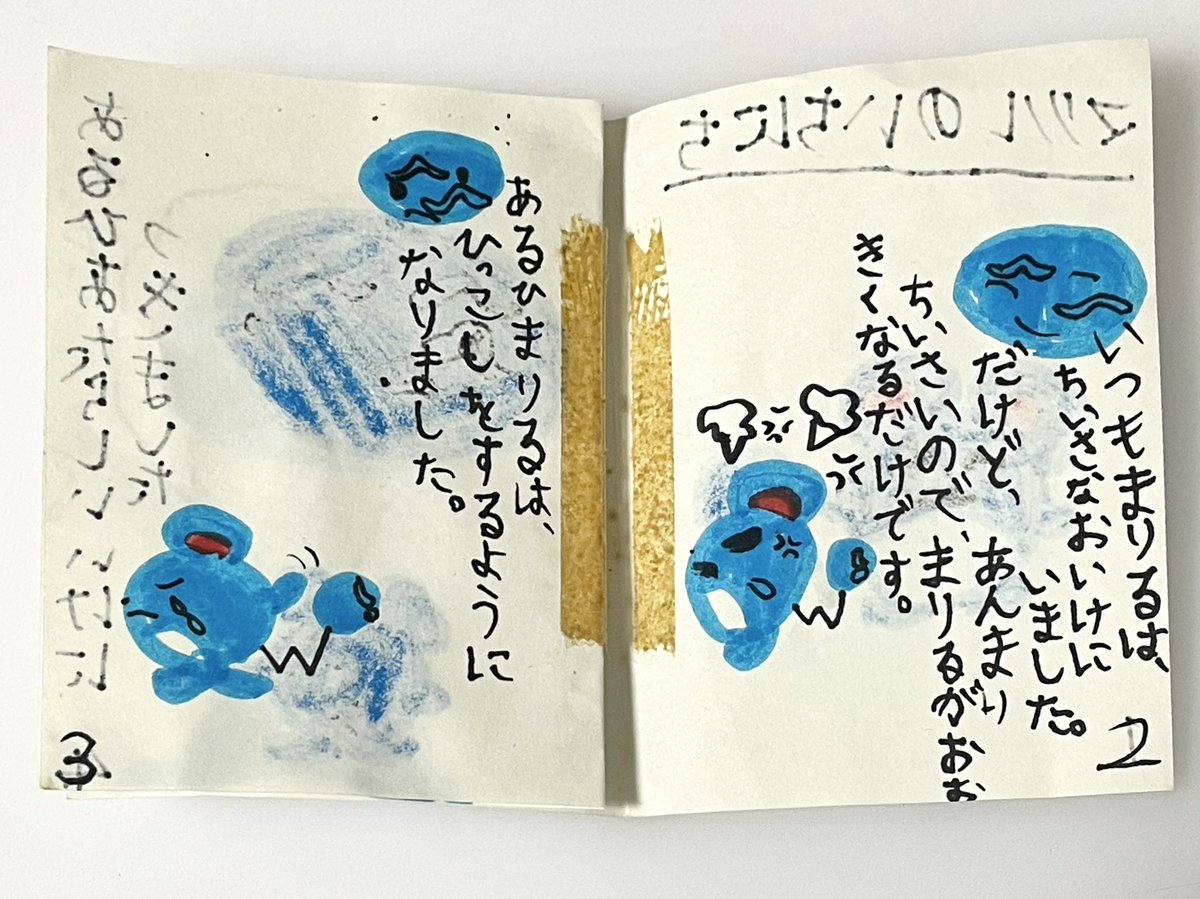 マリルのいちにち
いつもまりるは、
ちいさなおいけに
いました。
だけど、あんまり
ちいさいので、まりるがおお
きくなるだけです。
2
あるひまりるは、
ひっこしをするように
なりました。
3